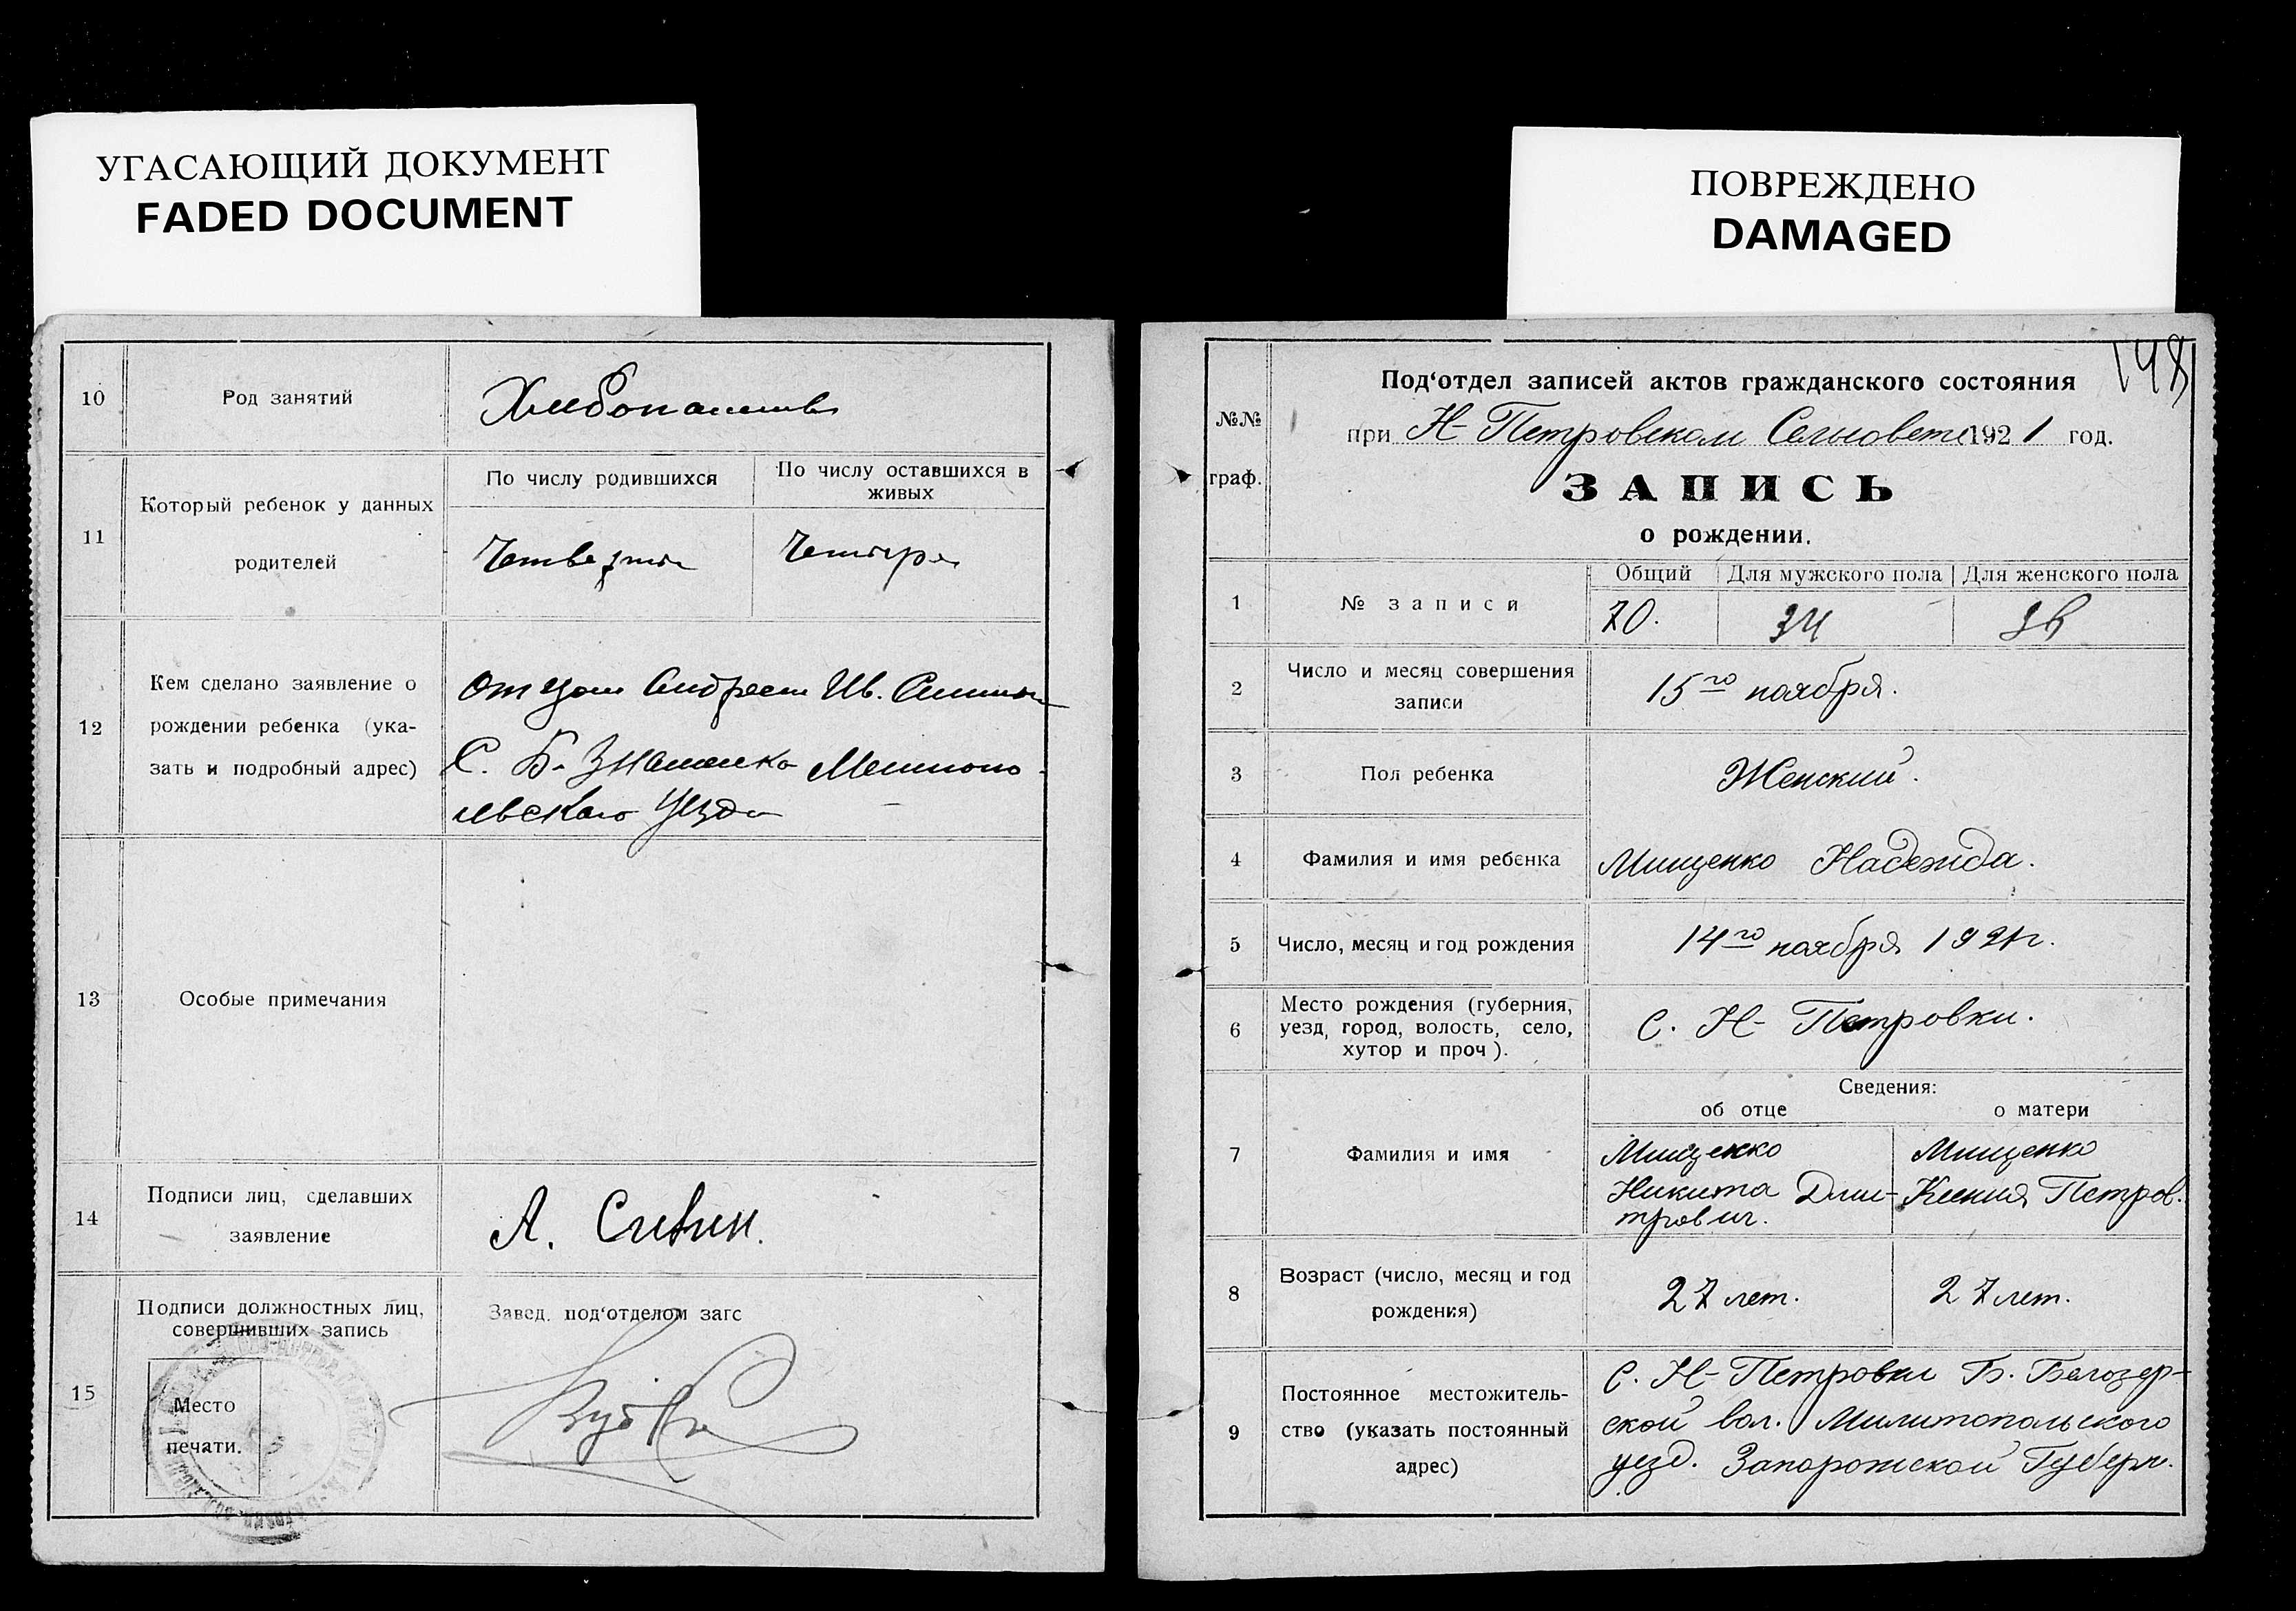 УГАСАЮЩИЙ ДОКУМЕНТ
FADED DOCUMENT
10
Род занятий
Хлебопашество
11
Который ребенок у данных
родителей
По числу родившихся
По числу оставшихся в
живых
Четвертый
Четыре
12
Кем сделано заявление о
рождении ребенка (ука-
зать и подробный адрес)
отцом Андреем Ив.
С. Б- Знаменка Мелитопо-
левского Уезда
13
Особые примечания
14
Подписи лиц, сделавших
заявление
А. Сивин.
15
Подписи должностных лиц,
совершивших запись
Место
печати.
Завед. под‘отделом загс
ПОВРЕЖДЕНО
DAMAGED
148
№№
граф.
Под‘отдел записей актов гражданского состояния
при Н- Петровском Сельсовете 1921 год.
ЗАПИСЬ
о рождении.
1
№ записи
Общий
Для мужского пола
Для женского пола
70.
34
36
2
Число и месяц совершения
записи
15го ноября.
3
Пол ребенка
Женский.
4
Фамилия и имя ребенка
Мищенко Надежда.
5
Число, месяц и год рождения
14го ноября 1921г.
6
Место рождения (губерния,
уезд, город, волость, село,
хутор и проч).
С. Н- Петровки.
Сведения:
об отце
о матери
7
Фамилия и имя
Мищенко
Никита Дми-
трович.
Мищенко
Ксения Петров.
8
Возраст (число, месяц и год
рождения)
27 лет.
27 лет.
9
Постоянное местожитель-
ство (указать постоянный
адрес)
С. Н- Петровки Б. Белозер-
ской вол. Милитопольского
уезд. Запорожской Губерн.